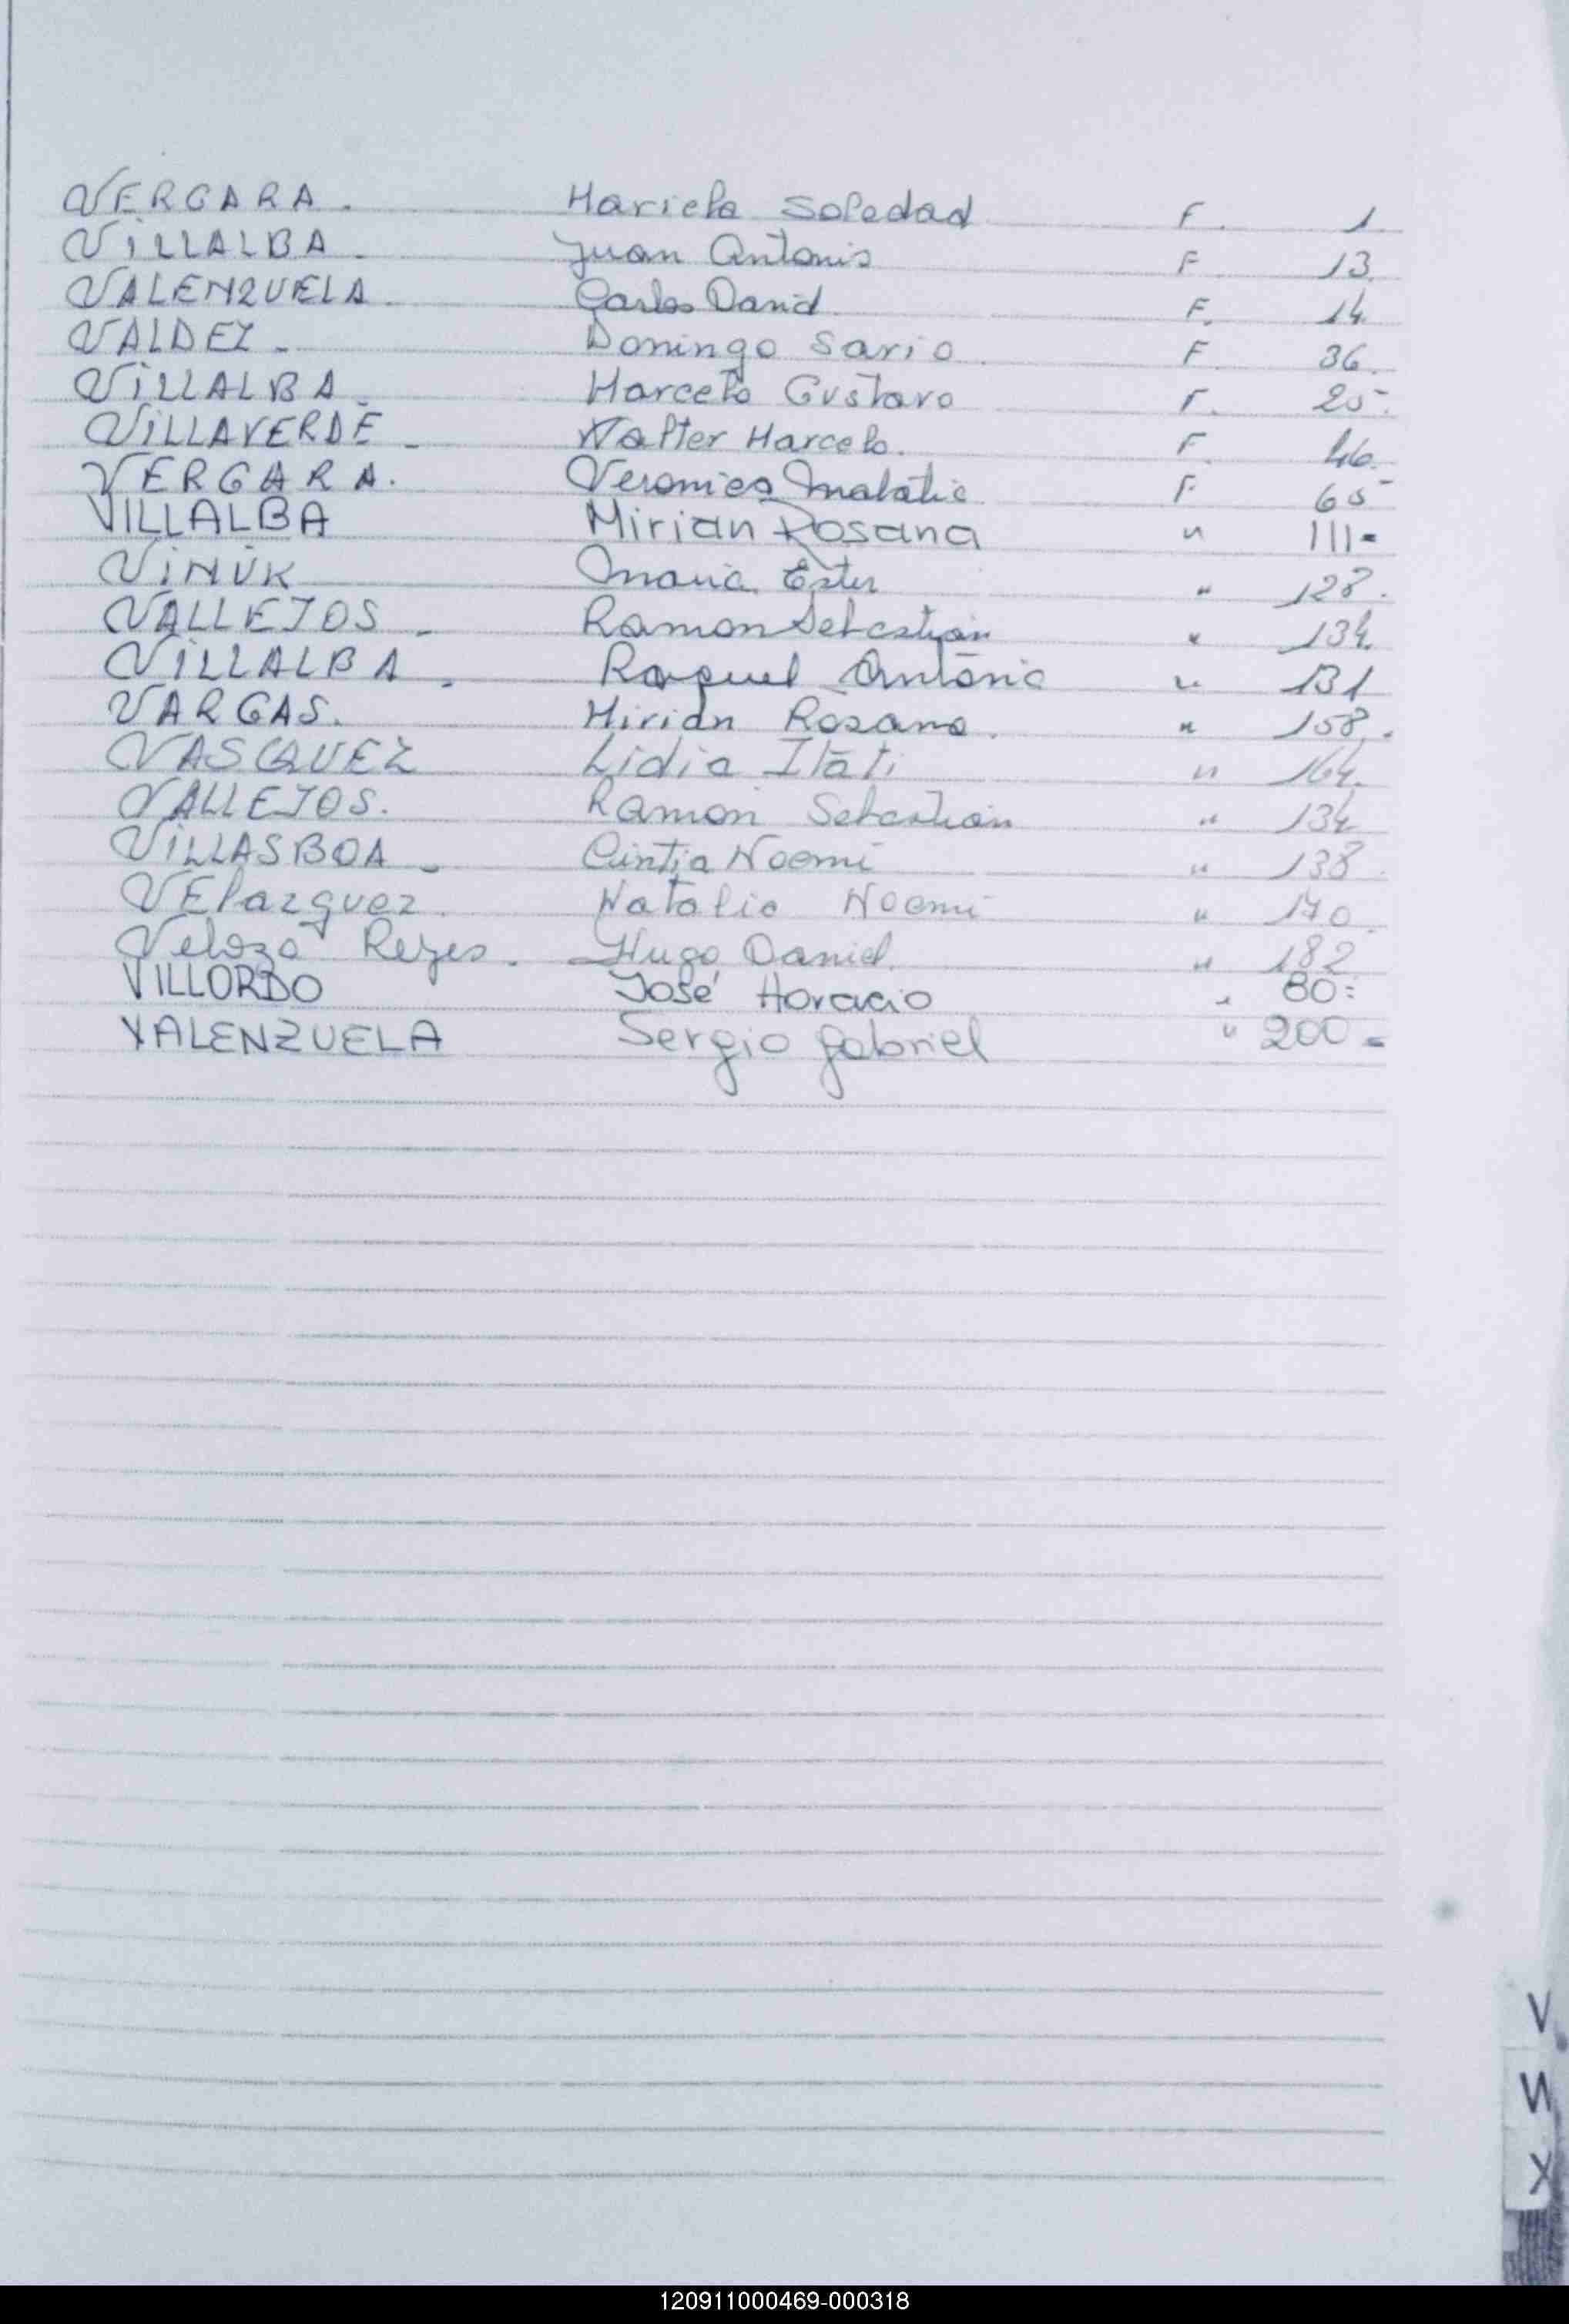 VERGARA. Mariela Soledad F. 1
VILLALBA. Juan Antonio F 13.
VALENZUELA. Carlos David F. 14.
VALDEZ. Domingo Sario. F. 36.
VILLALBA. Marcelo Gustavo F. 25-.
VILLAVERDE. Walter Marcelo. F. 46.
VERGARA. Veronica Natalie F. 65
VILLALBA Mirian Rosana " 111=
VINUK Maria Ester " 128.
VALLEJOS. Ramon Sebastian " 134.
VILLALBA. Raquel Antonia " 131
VARGAS. Mirian Rosana. " 158.
VASQUEZ Lidia Itati " 164.
VALLEJOS. Ramon Sebastian " 134
VILLASBOA. Cintia Noemi " 138.
VElazquez. Natalia Noemi " 170.
Velozo Reyes. Hugo Daniel. " 182.
VILLORDO José Horacio " 80=
VALENZUELA Sergio Gabriel " 200=
V
W
X
120911000469-000318